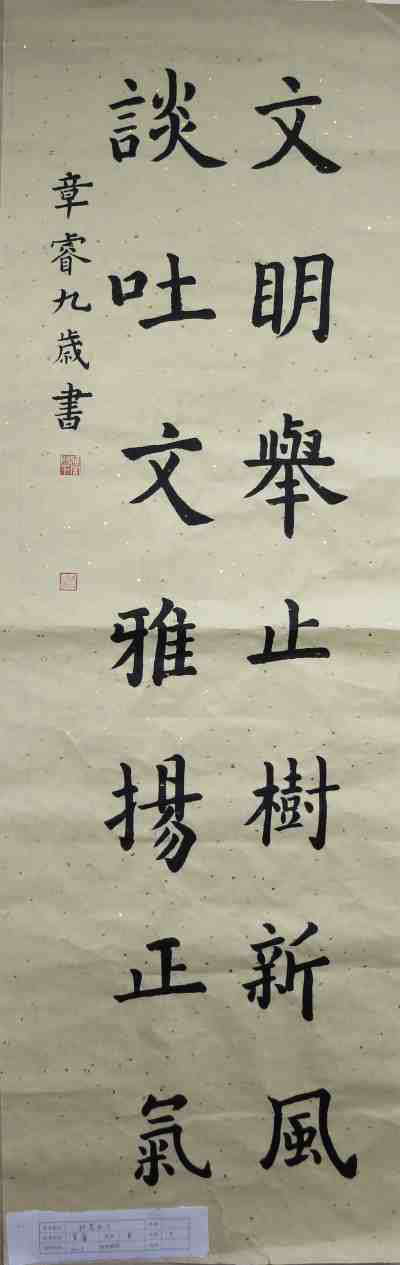 文明舉止樹新風
談吐文雅揚正氣
章睿九歲書